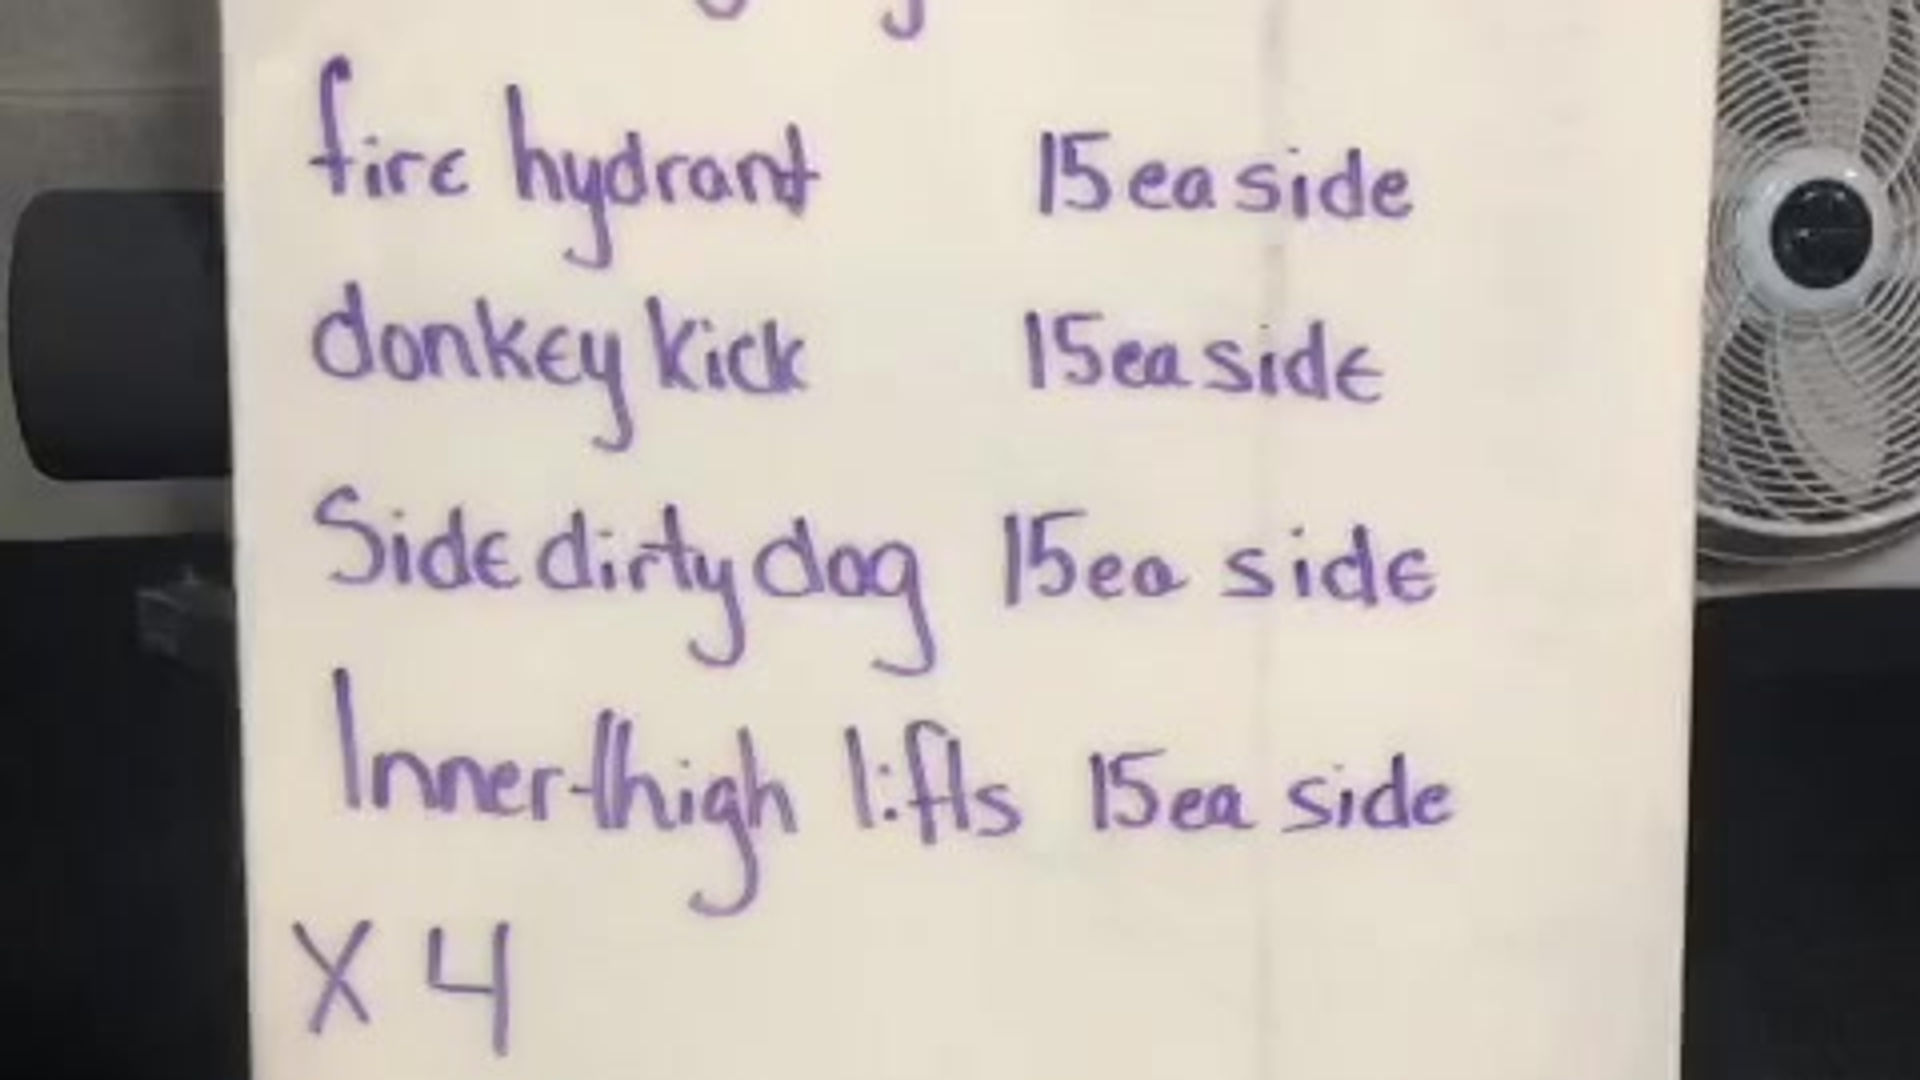 fire hydrant 15 ea side
donkey kick 15 ea side
Side dirty dog 15 ea side
Inner thigh lifts 15 ea side
X 4